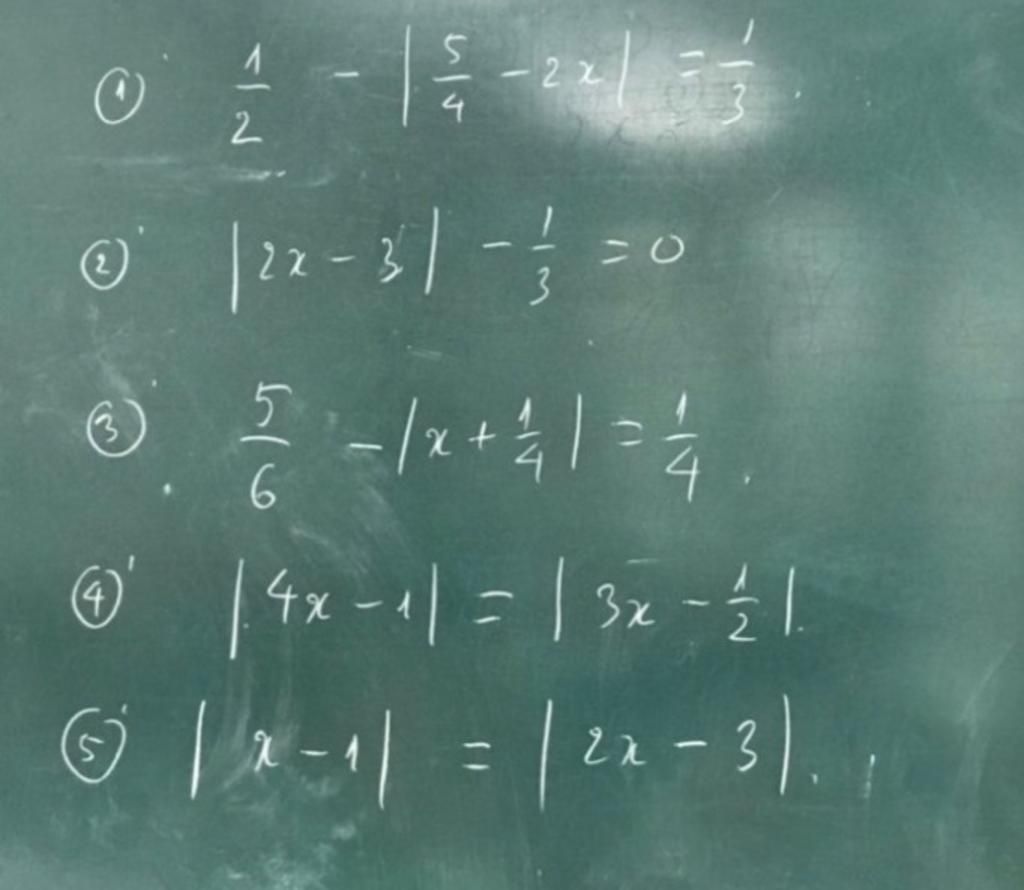 ① 1/2 - |5/4 - 2x| = 1/3.
② |2x - 3| - 1/3 = 0
③ 5/6 - |x + 1/4| = 1/4.
④ |4x - 1| = |3x - 1/2|.
⑤ |x - 1| = |2x - 3|.